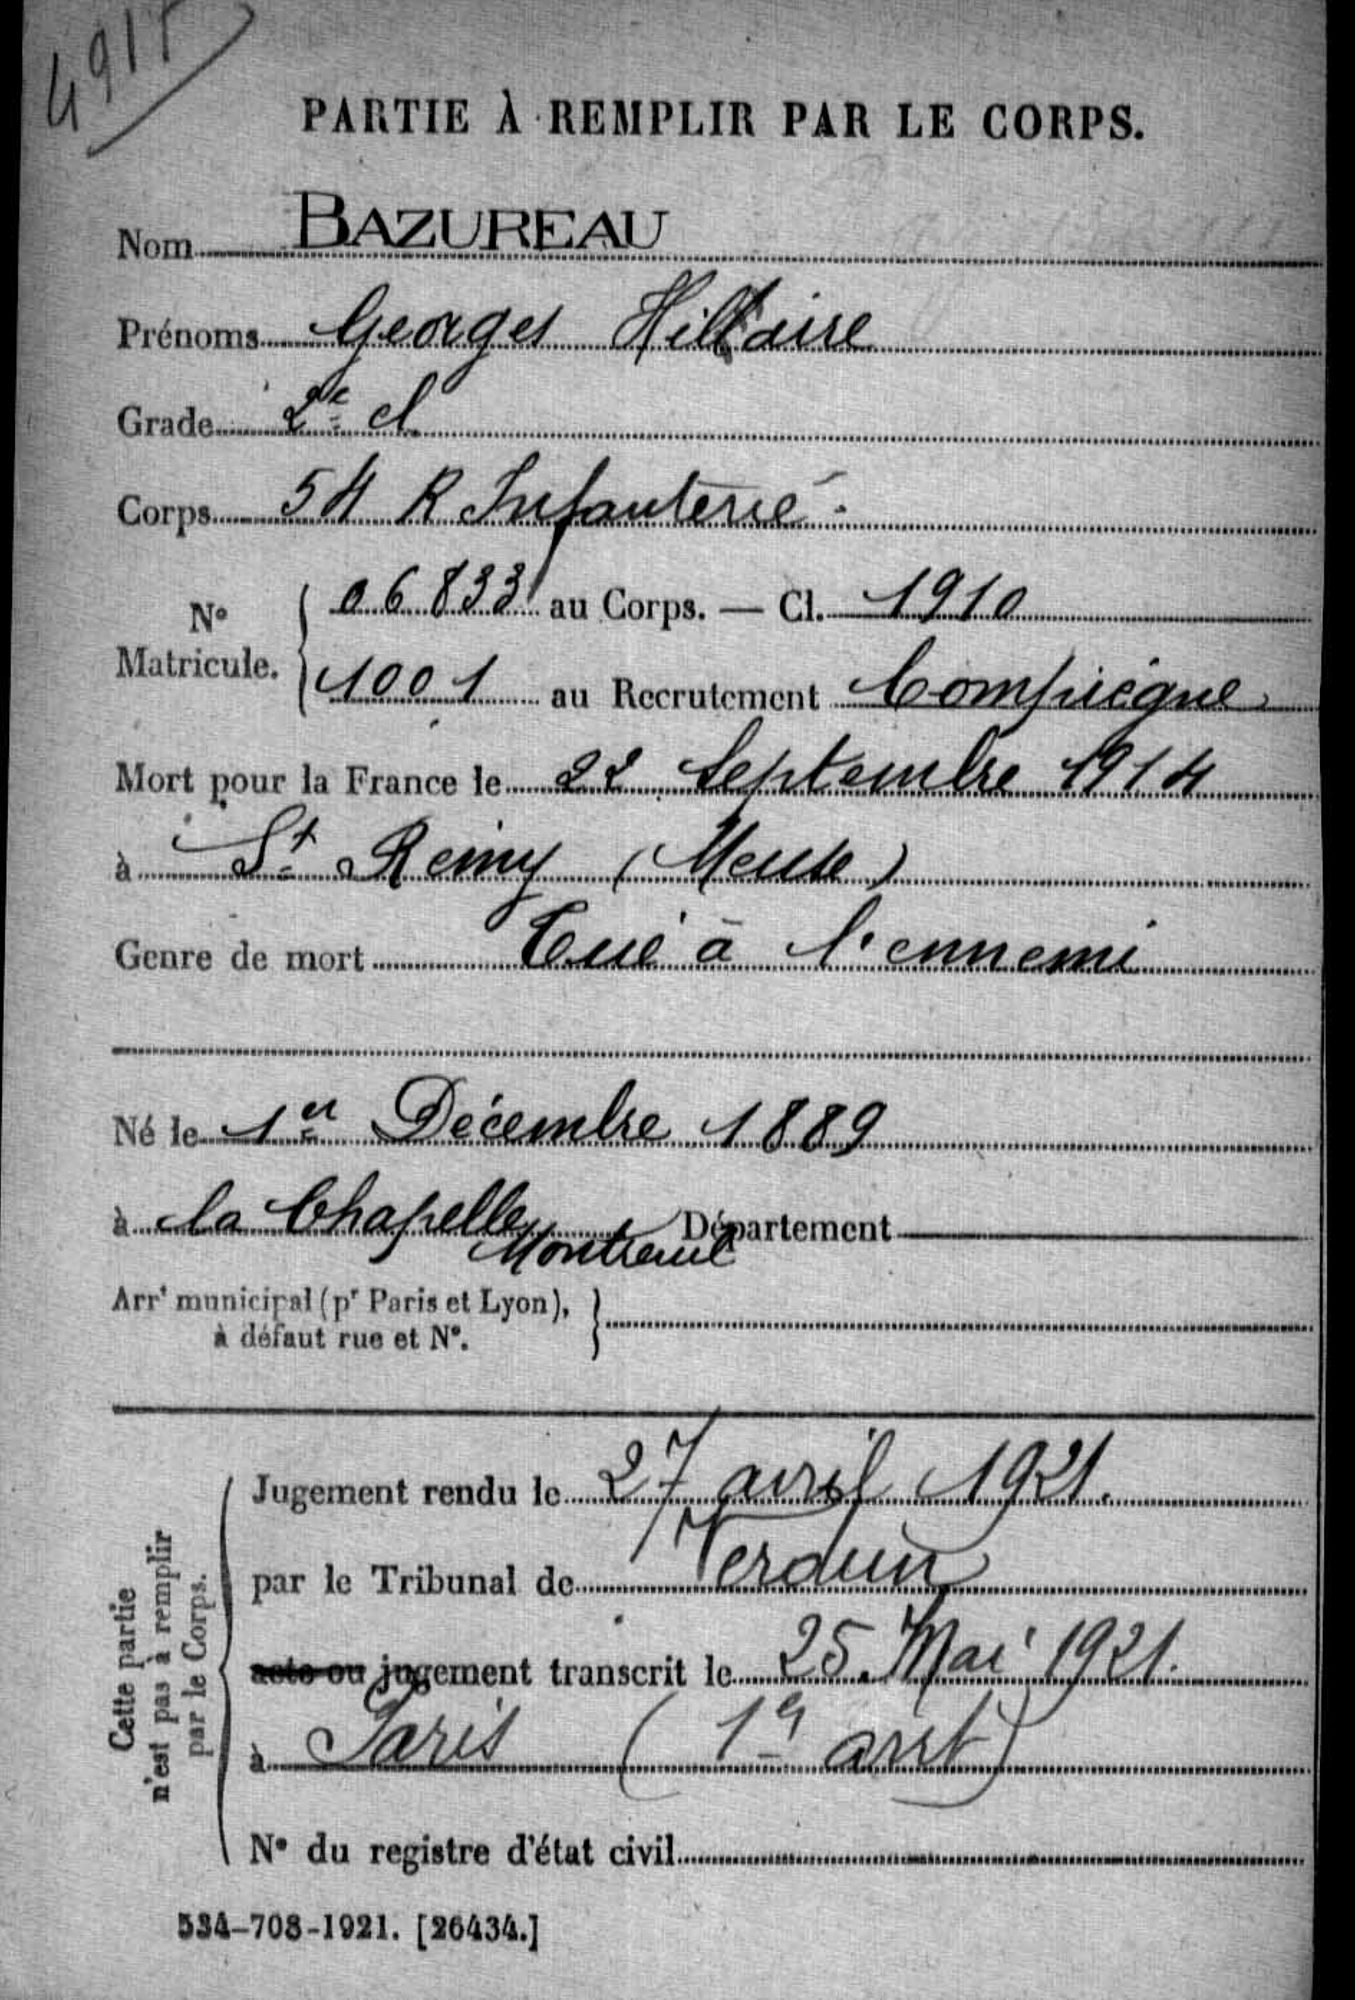 4915
PARTIE À REMPLIR PAR LE CORPS.
Nom BAZUREAU
Prénoms Georges Hillaire
Grade 2e cl
Corps 54 R Infanterie
N° Matricule. { 06833 au Corps. — Cl. 1910
1001 au Recrutement Compiègne
Mort pour la France le 22 Septembre 1914
à St Remy (Meuse)
Genre de mort Tué à l'ennemi
Né le 1er Décembre 1889
à la Chapelle Département
Montreuil
Arrt municipal (pr Paris et Lyon), }
à défaut rue et N°.
Cette partie
n'est pas à remplir
par le Corps.
Jugement rendu le 27 avril 1921.
par le Tribunal de Verdun
acte ou jugement transcrit le 25 Mai 1921.
à Paris (1e arrt)
N° du registre d'état civil
534-708-1921. [26434.]